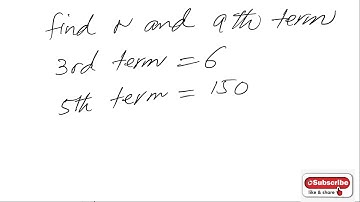 find r and 9th term
3rd term = 6
5th term = 150
Subscribe
like & share